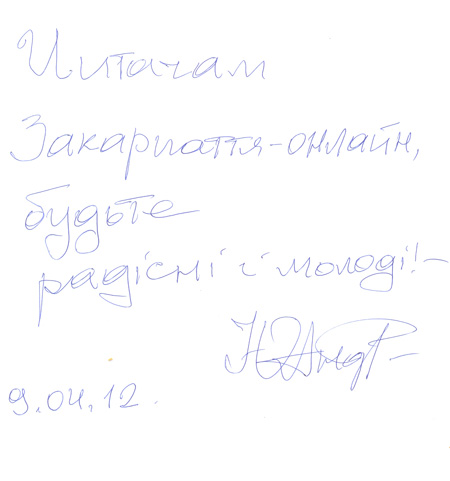 Читачам
Закарпаття-онлайн,
будьте
радісні і молоді! –
9.04.12.